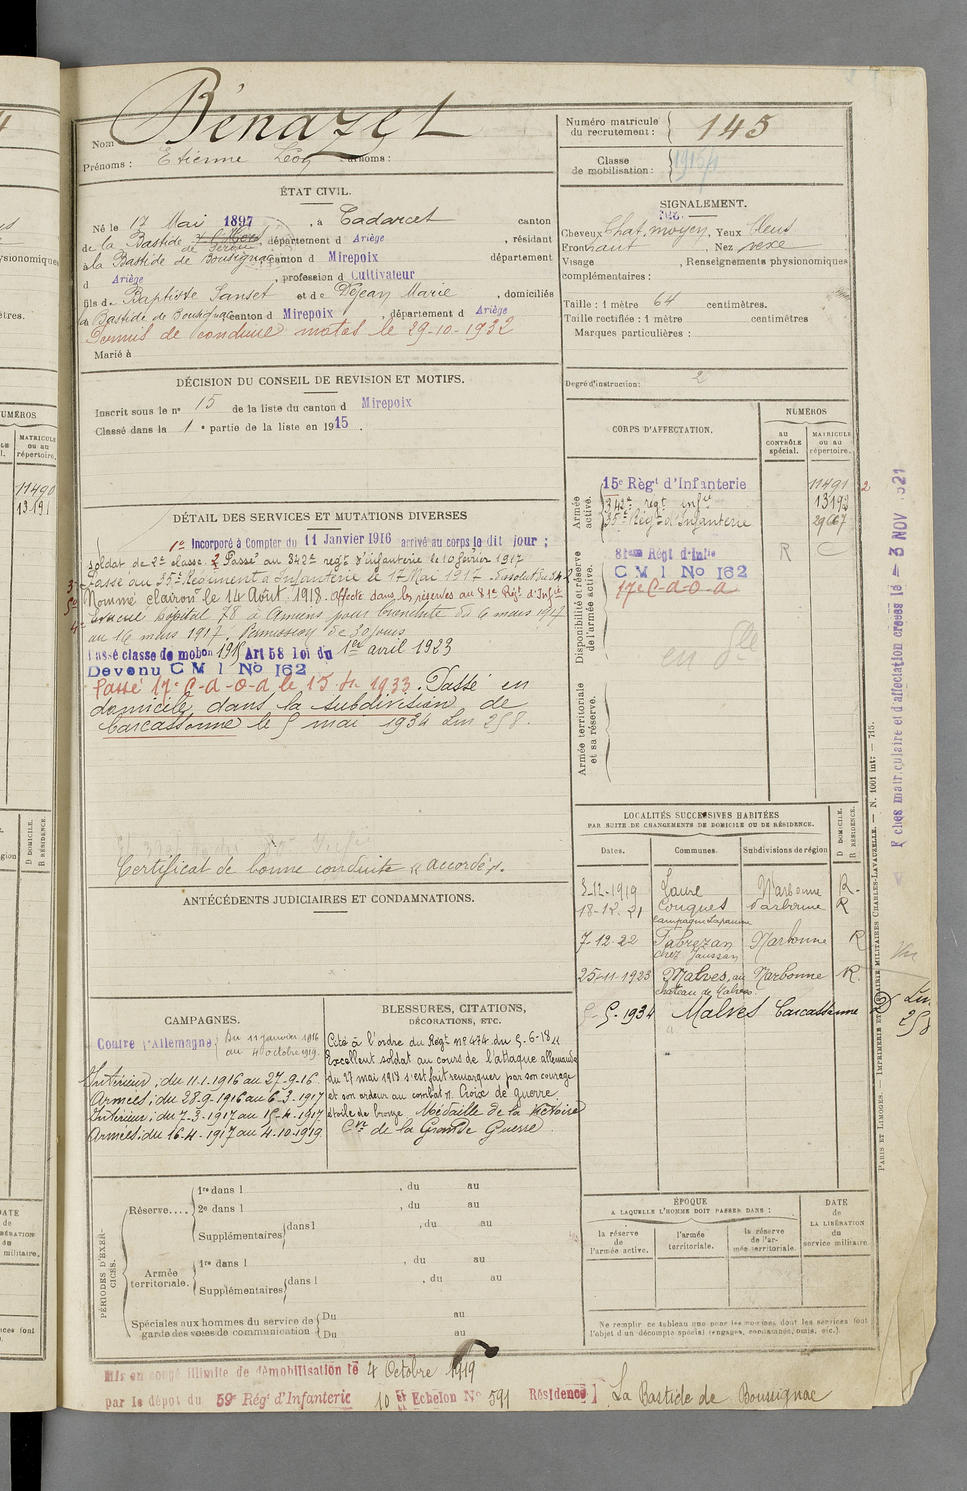 Nom Bénazet
Prénoms : Etienne Léon Surnoms :
Numéro matricule du recrutement : 145
Classe de mobilisation : 1915
ÉTAT CIVIL.
Né le 17 Mai 1897, à Cadarcet canton
de la Bastide de Sérou, département d Ariège, résidant
à la Bastide de Bousignac canton d Mirepoix département
d Ariège, profession d Cultivateur
fils de Baptiste Sanset et de Dejean Marie, domiciliés
à Bastide de Bousignac canton d Mirepoix, département d Ariège
Permis de conduire motos le 29-10-1932
Marié à
SIGNALEMENT.
Cheveux Chat. moyen, Yeux bleus
Front haut, Nez vexe
Visage , Renseignements physionomiques
complémentaires :
Taille : 1 mètre 64 centimètres.
Taille rectifiée : 1 mètre centimètres
Marques particulières :
Degré d'instruction : 2
DÉCISION DU CONSEIL DE REVISION ET MOTIFS.
Inscrit sous le n° 15 de la liste du canton d Mirepoix
Classé dans la 1e partie de la liste en 1915.
CORPS D'AFFECTATION.
NUMÉROS
AU CONTRÔLE spécial.
MATRICULE ou au répertoire.
Armée active.
15e Régt d'Infanterie 11491
342e regt infie 13193
35e Régt d'Infanterie 29667
Disponibilité et réserve de l'armée active.
81eme Régt d'Infie R C
C M 1 No 162
17e C-a-O-a
en Dle
Armée territoriale et sa réserve.
DÉTAIL DES SERVICES ET MUTATIONS DIVERSES
1e Incorporé à Compter du 11 Janvier 1916 arrivé au corps le dit jour ;
soldat de 2e classe. 2 Passé au 342e regt d'infanterie le 10 février 1917
Passé au 35e Régiment d'Infanterie le 17 Mai 1917
Nommé clairon le 14 Août 1918. Affecté dans les réserves au 81e Régt d'Infie
Evacué hôpital 78 à Amiens pour bronchite du 6 mars 1917
au 16 mars 1917. Permission de 30 jours
Passé classe de mobon 1915 Art 58 loi du 1er avril 1923
Devenu C M 1 No 162
Passé 17e C-a-O-a le 15 1933. Passé en
domicile dans la subdivision de
Carcassonne le 5 mai 1934 Lm 258.
Certificat de bonne conduite "accordé".
ANTÉCÉDENTS JUDICIAIRES ET CONDAMNATIONS.
LOCALITÉS SUCCESSIVES HABITÉES
PAR SUITE DE CHANGEMENTS DE DOMICILE OU DE RÉSIDENCE.
Dates. Communes. Subdivisions de région D DOMICILE. R RÉSIDENCE.
3-12-1919 Laure Narbonne R.
18-12-21 Conques Narbonne R
campagne Lapaume
7-12-22 Fabrezan Narbonne R
chez Jaussan
25-11-1923 Malves, au Narbonne R.
château de Malves
5-5-1934 Malves Carcassonne
CAMPAGNES.
Contre l'Allemagne Du 11 janvier 1916
au 4 octobre 1919.
Intérieur ; du 11-1-1916 au 27-9-16
Armées ; du 28-9-1916 au 6-3-1917
Intérieur ; du 7-3-1917 au 15-4-1917
Armées ; du 16-4-1917 au 4-10-1919
BLESSURES, CITATIONS,
DÉCORATIONS, ETC.
Cité à l'ordre du Régt n° 474 du 5-6-18
Excellent soldat au cours de l'attaque allemande
du 27 mai 1918 s'est fait remarquer par son courage
et son ardeur au combat". Croix de guerre
étoile de bronze Médaille de la Victoire
Cve de la Grande Guerre
PÉRIODES D'EXERCICES.
Réserve....
1re dans l , du au
2e dans l , du au
Supplémentaires dans l , du au
Armée territoriale.
1re dans l , du au
Supplémentaires dans l , du au
Spéciales aux hommes du service de garde des voies de communication
Du au
Du au
ÉPOQUE
A LAQUELLE L'HOMME DOIT PASSER DANS :
la réserve de l'armée active.
l'armée territoriale.
la réserve de l'armée territoriale.
DATE de LA LIBÉRATION du service militaire.
Ne remplir ce tableau que pour les hommes dont les services font
l'objet d'un décompte spécial (engagés, condamnés, omis, etc.)
Mis en congé illimité de démobilisation le 4 Octobre 1919
par le dépôt du 59e Régt d'Infanterie 10 Echelon No 591 Résidence La Bastide de Bousignac
PARIS ET LIMOGES. — IMPRIMERIE ET LIBRAIRIE MILITAIRES CHARLES-LAVAUZELLE. — N. 1001 int: — 715.
Fiches matriculaire et d'affectation créées le 3 NOV 1921
Lm 258